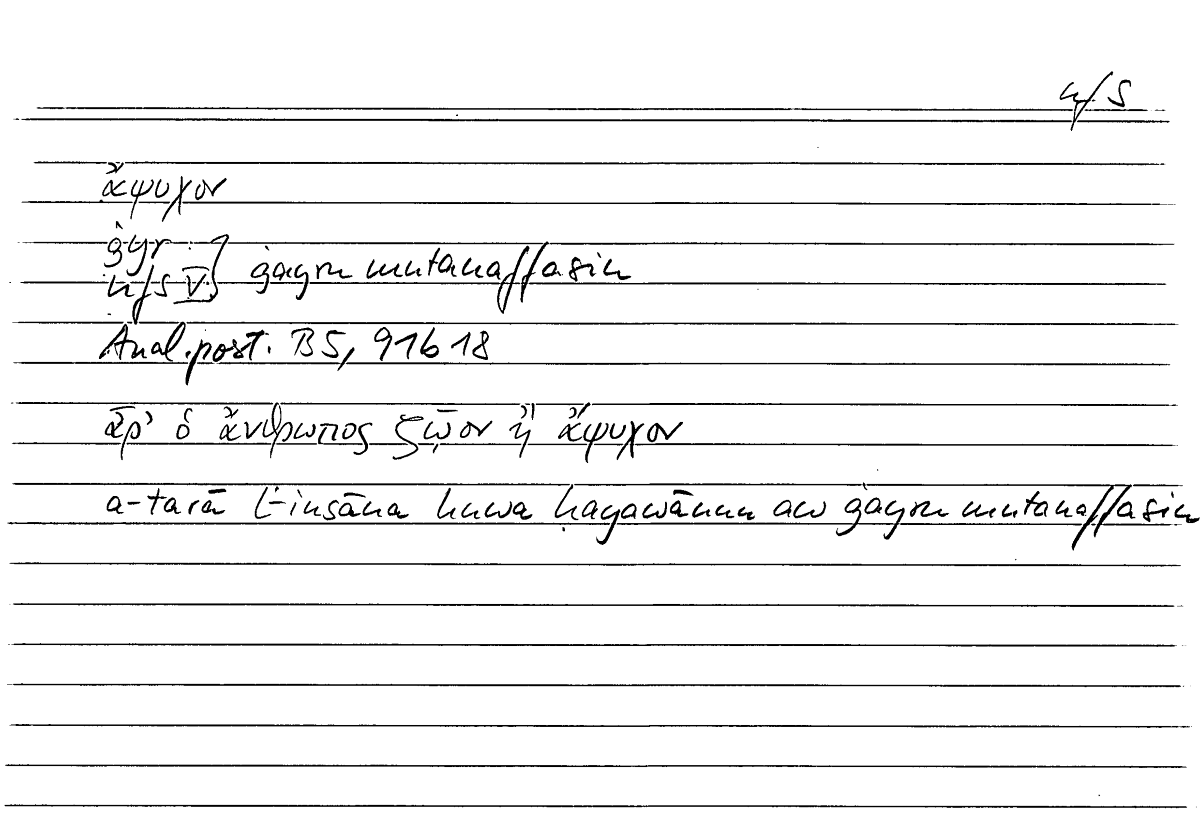 nfs
ἄψυχον
ġyr
nfs V } ġayru mutanaffasin
Anal. post. B5, 91b18
ἆρ' ὁ ἄνθρωπος ζῷον ἢ ἄψυχον
a-tarā l-insāna huwa ḥayawānun aw ġayru mutanaffasin